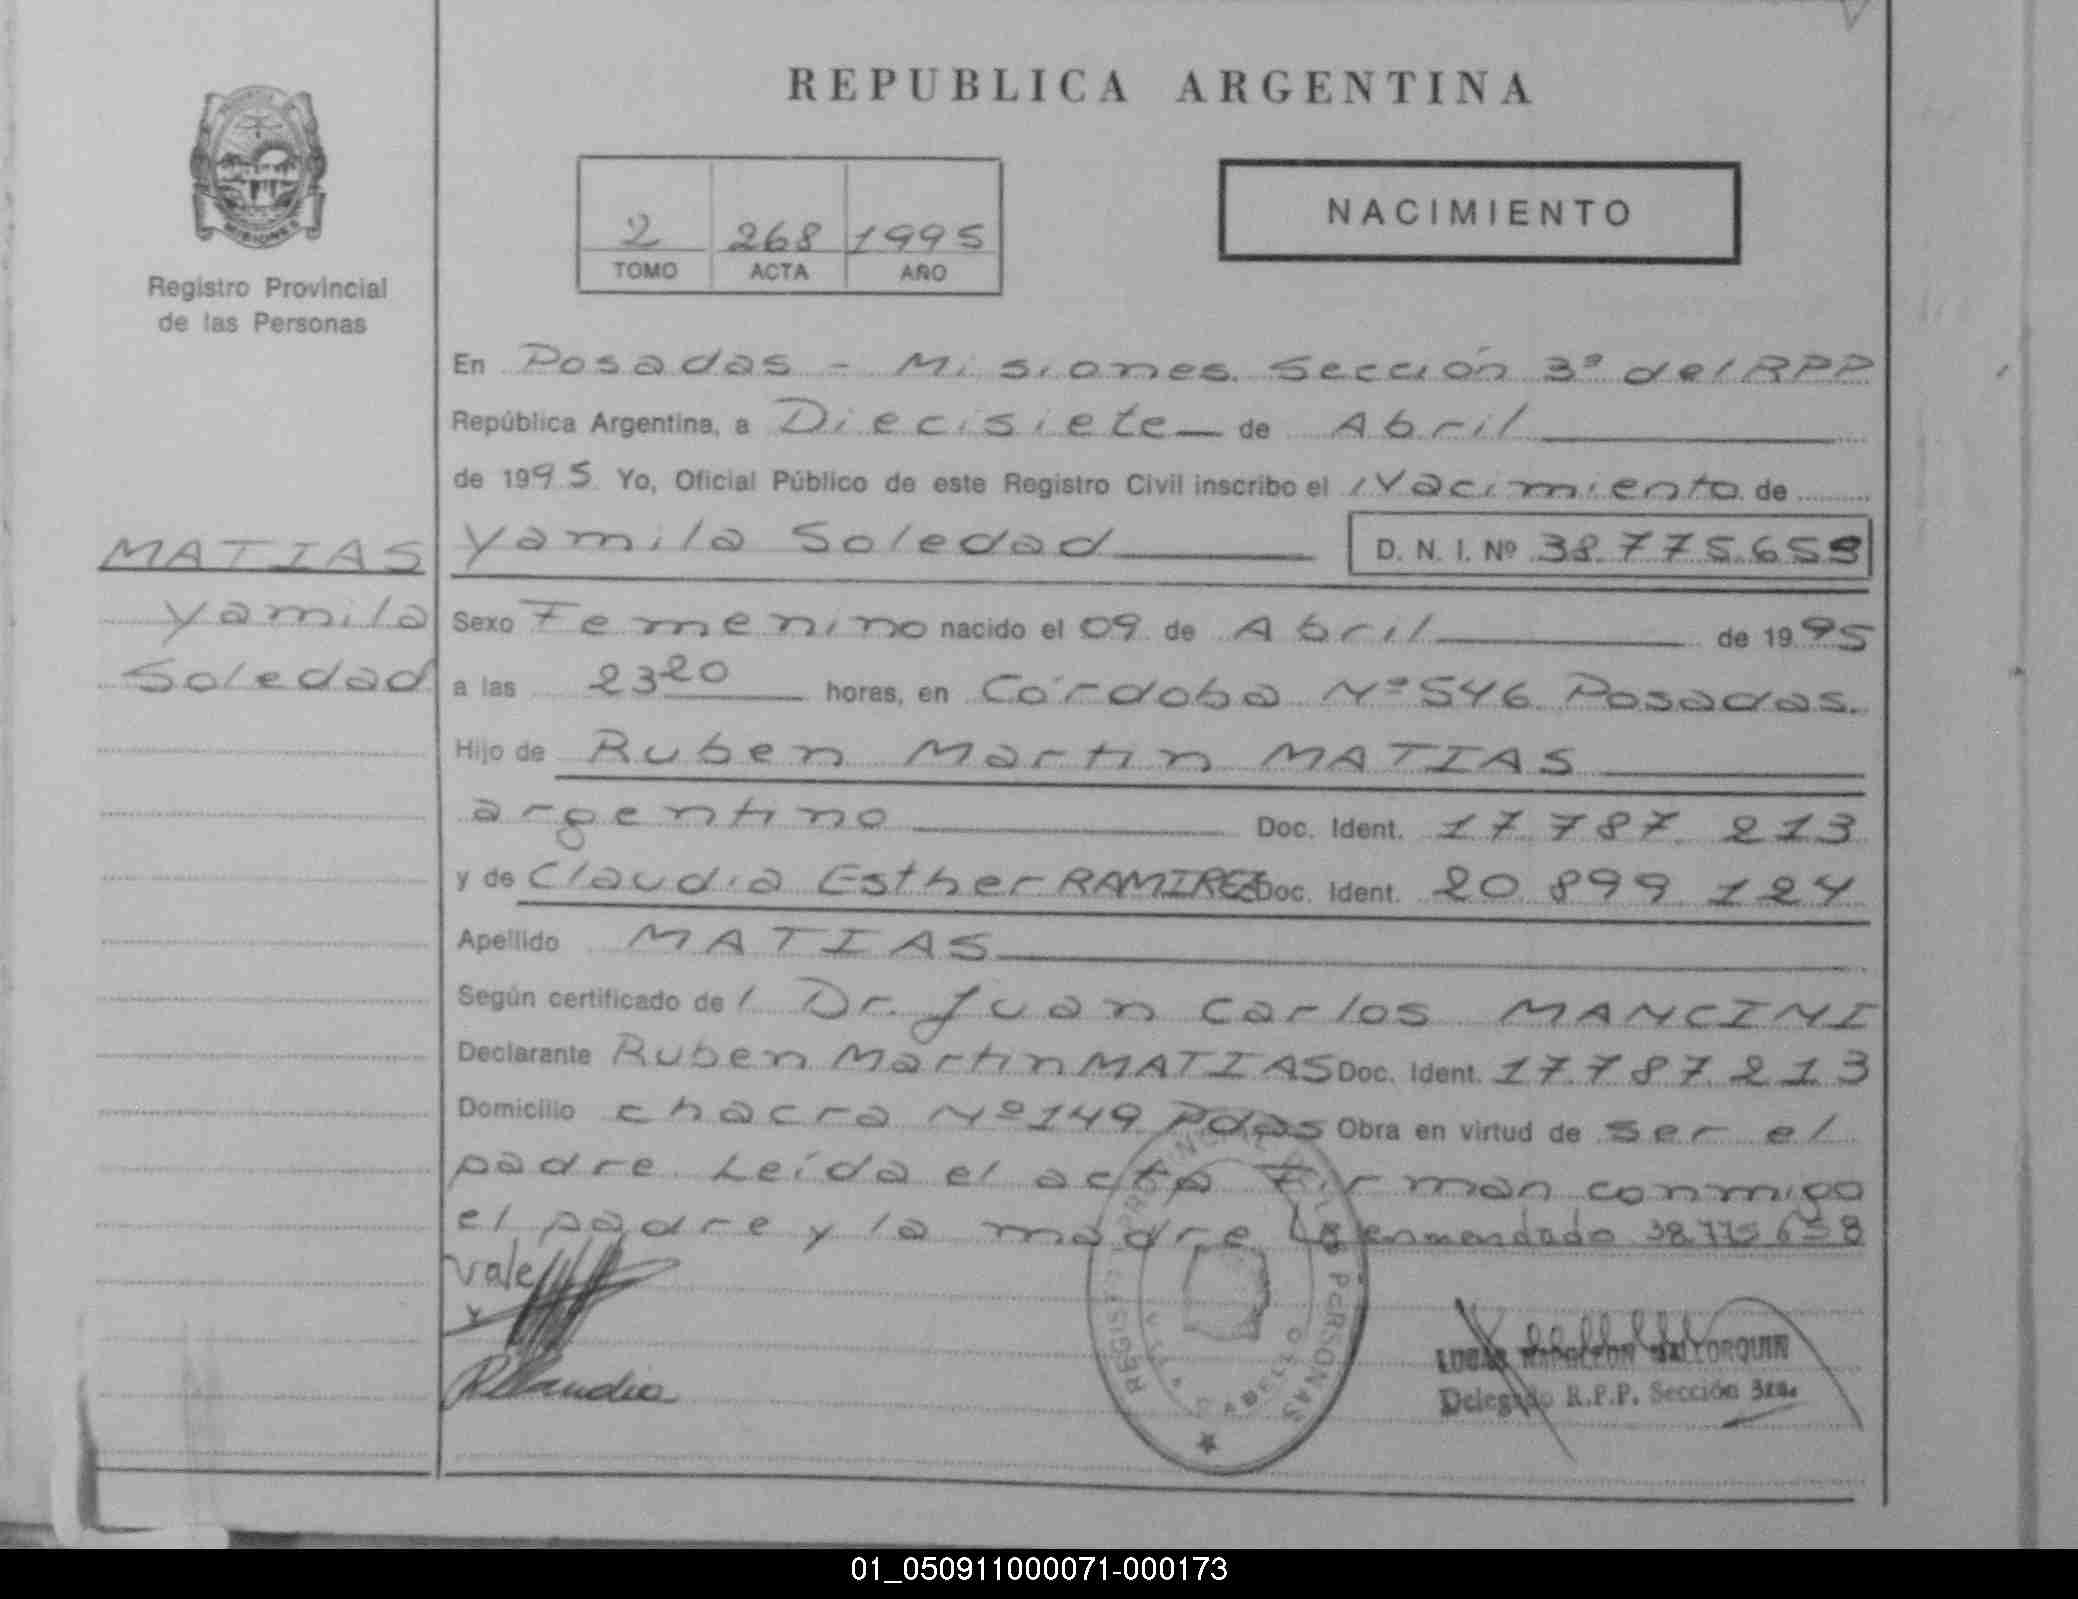 REPUBLICA ARGENTINA
MISIONES
Registro Provincial
de las Personas
2 268 1995
TOMO ACTA AÑO
NACIMIENTO
En Posadas - Misiones. Sección 3ª del RPP
República Argentina, a Diecisiete de Abril
de 1995 Yo, Oficial Público de este Registro Civil inscribo el Nacimiento de
MATIAS
Yamila
Soledad
Yamila Soledad D. N. I. Nº 38.775.658
Sexo Femenino nacido el 09 de Abril de 1995
a las 23 20 horas, en Córdoba Nº 546 Posadas.
Hijo de Ruben Martin MATIAS
argentino Doc. Ident. 17 787 213
y de Claudia Esther RAMIREZ Doc. Ident. 20 899 124
Apellido MATIAS
Según certificado de l Dr. Juan Carlos MANCINI
Declarante Ruben Martin MATIAS Doc. Ident. 17787213
Domicilio chacra Nº 149 Pdas Obra en virtud de ser el
padre Leída el acta Firman conmigo
el padre y la madre enmendado 38.775.658
Vale
REGISTRO PERSONAS
Delegado R.P.P. Sección 3ra.
01_050911000071-000173